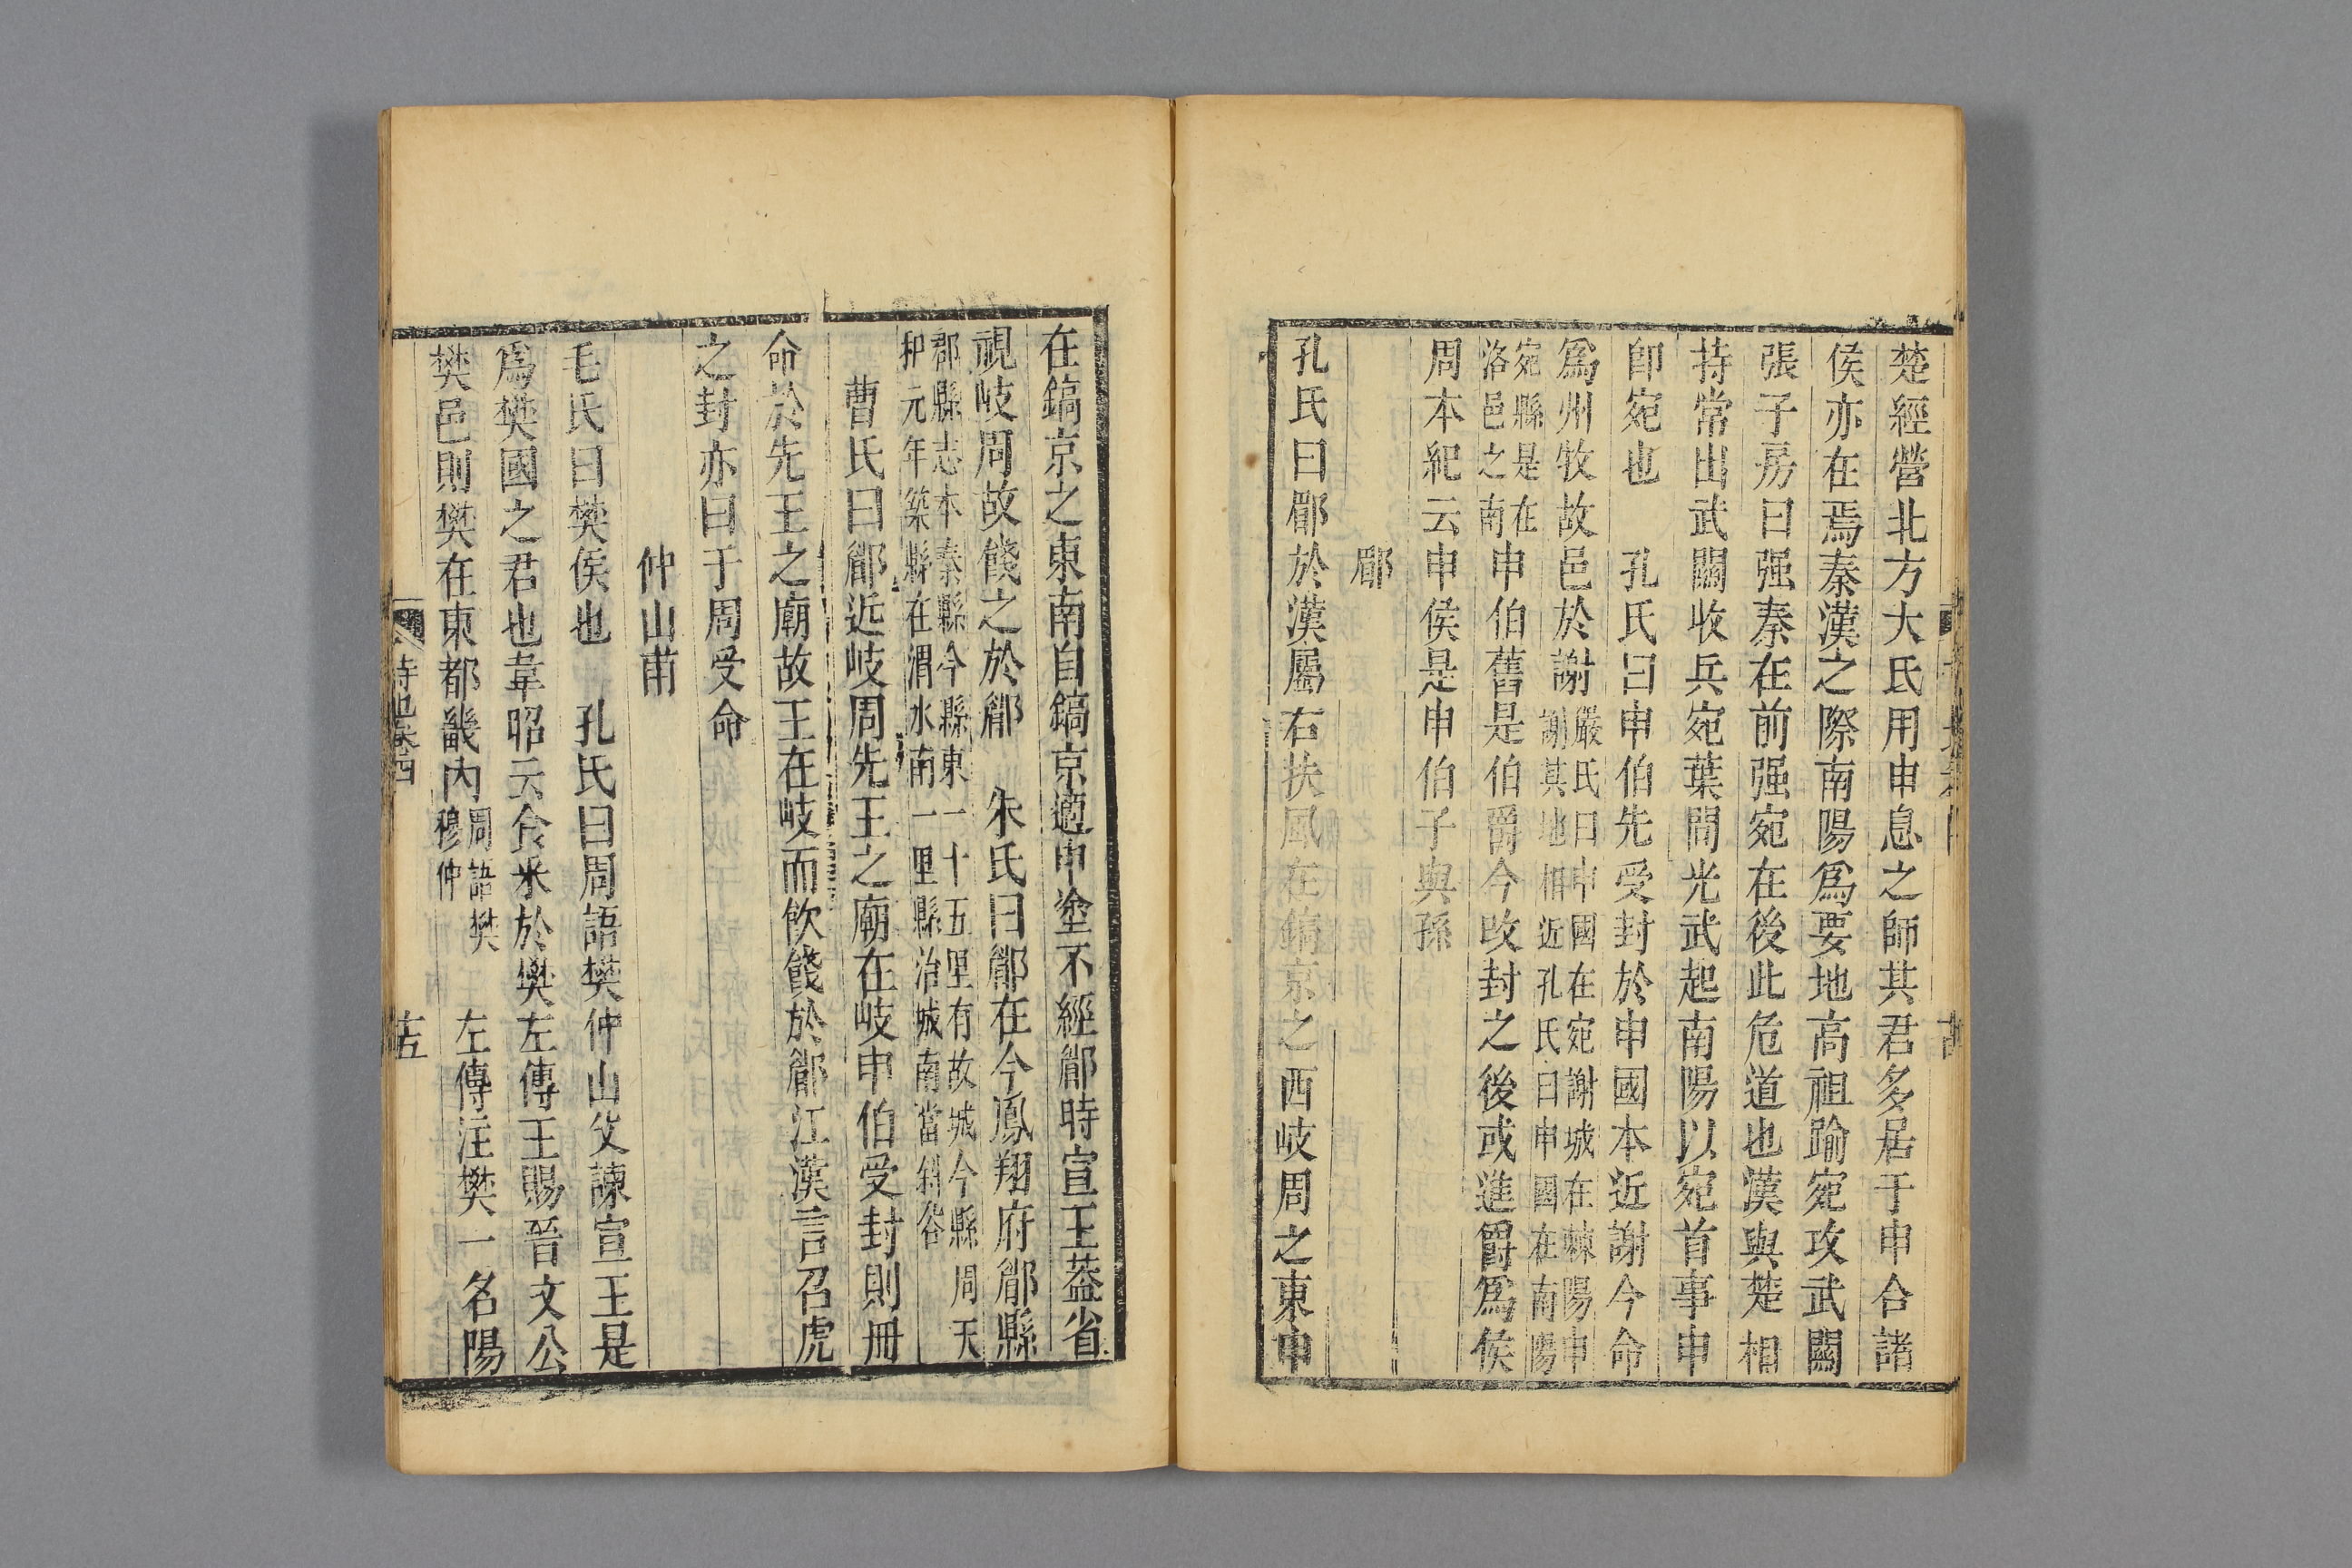 楚經營北方大氏用申息之師其君多居于申合諸
侯亦在焉秦漢之際南陽爲要地高祖踰宛攻武關
張子房曰强秦在前强宛在後此危道也漢與楚相
持常出武關收兵宛葉間光武起南陽以宛首事申
卽宛也　孔氏曰申伯先受封於申國本近謝今命
爲州牧故邑於謝嚴氏曰申國在宛謝城在棘陽申
謝其地相近孔氏曰申國在南陽
宛縣是在
洛邑之南申伯舊是伯爵今改封之後或進爵爲侯
周本紀云申侯是申伯子與孫
郿
孔氏曰郿於漢屬右扶風在鎬京之西岐周之東申
在鎬京之東南自鎬京適申塗不經郿時宣王葢省
視岐周故餞之於郿　朱氏曰郿在今鳳翔府郿縣
郡縣志本秦縣今縣東一十五里有故城今縣周天
和元年築縣在渭水南一里縣治城南當斜谷
曹氏曰郿近岐周先王之廟在岐申伯受封則冊
命於先王之廟故王在岐而飲餞於郿江漢言召虎
之封亦曰于周受命
仲山甫
毛氏曰樊侯也　孔氏曰周語樊仲山父諫宣王是
爲樊國之君也韋昭云食采於樊左傳王賜晉文公
樊邑則樊在東都畿内周語樊
穆仲　左傳注樊一名陽
詩地考四
十五